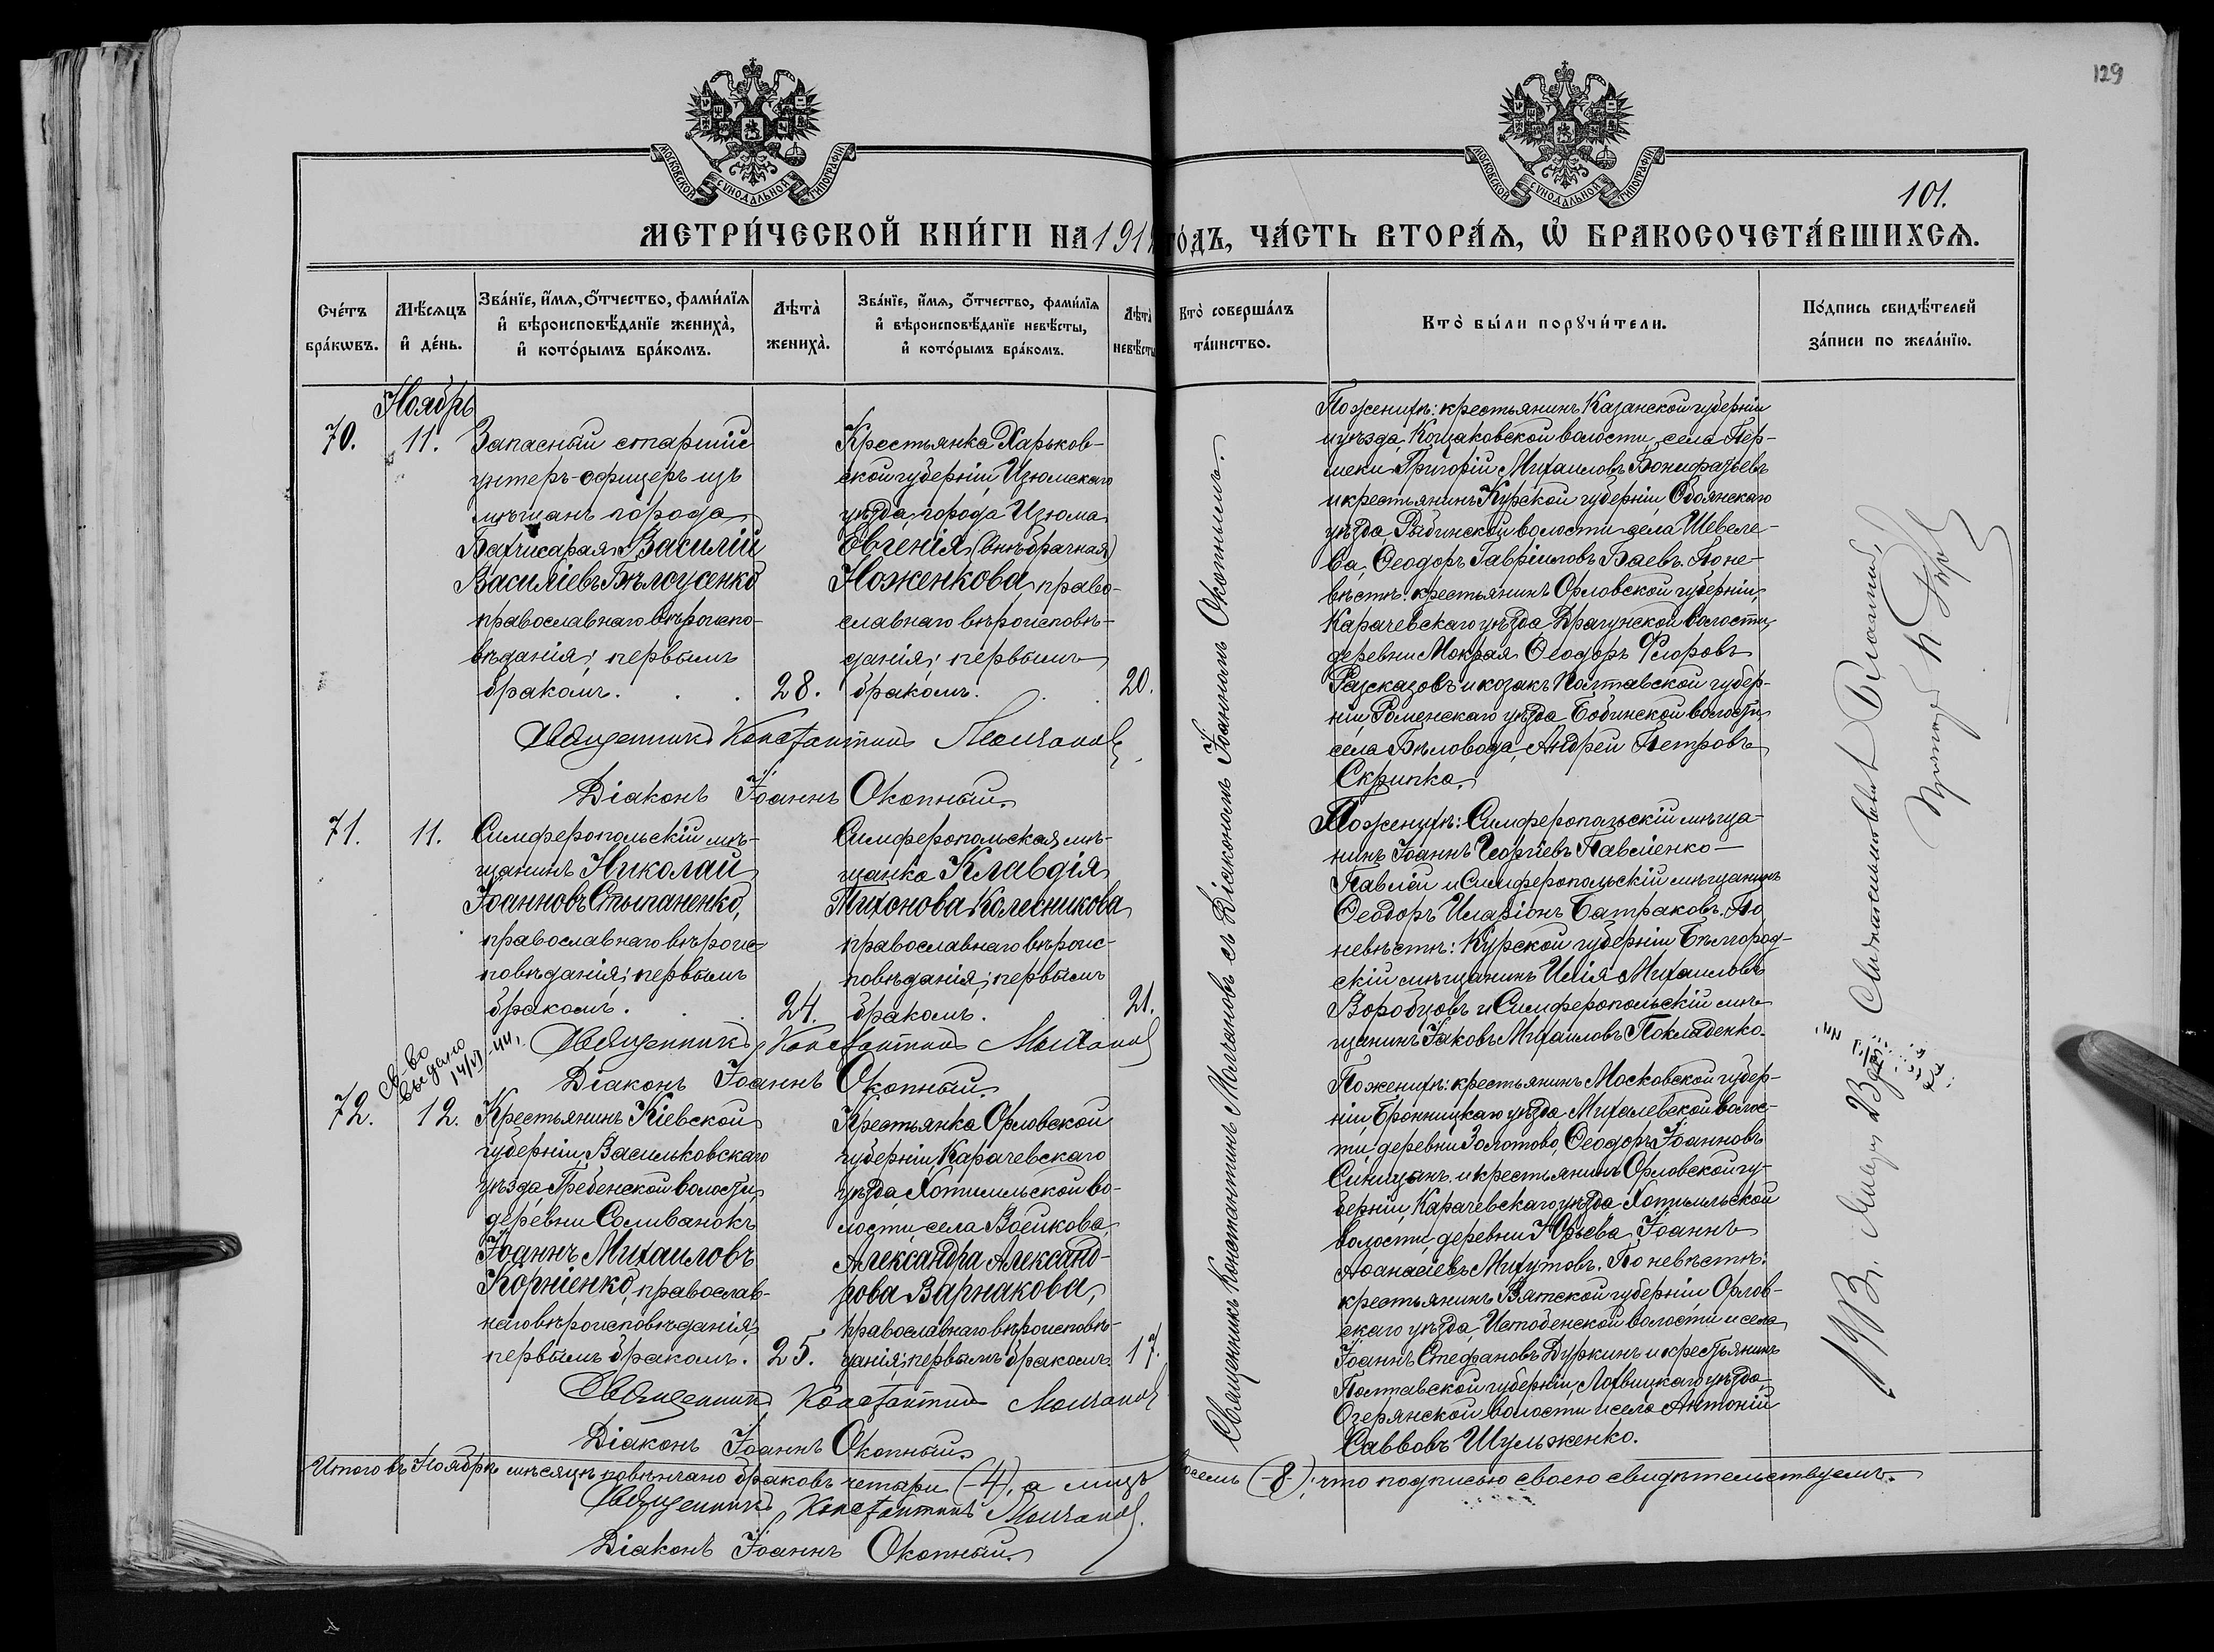 129
101.
МОСКОВСКОЙ СѴНОДАЛЬНОЙ ТИПОГРАФІИ
МОСКОВСКОЙ СѴНОДАЛЬНОЙ ТИПОГРАФІИ
МЕТРИ́ЧЕСКОЙ КНИ́ГИ НА 191 ГО́ДЪ, ЧА́СТЬ ВТОРА́Ѧ, Ѽ БРАКОСОЧЕТА́ВШИХСѦ.
Сче́тъ
бра́кѡвъ.
Мѣ́сѧцъ
и҆ де́нь.
Зва́нїе, и҆́мѧ, ѻ҆́тчество, фами́лїѧ
и҆ вѣроисповѣ́данїе жениха̀,
и҆ кото́рымъ бра́комъ.
Лѣта̀
жениха̀.
Зва́нїе, и҆́мѧ, ѻ҆́тчество, фами́лїѧ
и҆ вѣроисповѣ́данїе невѣ́сты,
и҆ кото́рымъ бра́комъ.
Лѣта̀
невѣ́сты
Кто̀ соверша́лъ
та́инство.
Кто̀ бы́ли порꙋчи́тели.
По́дпись свидѣ́телей
за́писи по жела́нїю.
Ноябрь
70.
11.
Запасный старшій
унтеръ-офицеръ изъ
мѣщанъ города
Бахчисарая Василій
Василіевъ Бѣлоусенко
православнаго вѣроиспо-
вѣданія; первымъ
бракомъ.
28.
Крестьянка Харьков-
ской губерніи Изюмскаго
уѣзда, города Изюма
Евгенія (внѣбрачная)
Ноженкова, право-
славнаго вѣроисповѣ-
данія; первымъ
бракомъ.
20.
Священникъ Константинъ Молчановъ
Діаконъ Іоаннъ Окопный.
По женихѣ: крестьянинъ Казанской губерніи
и уѣзда, Кощаковской волости, села Пер-
меки Григорій Михаиловъ Бонифатьевъ
и крестьянинъ Курской губерніи, Обоянскаго
уѣзда, Рыбинской волости села Шевеле-
ва, Ѳеодоръ Гавріиловъ Баевъ. По не-
вѣстѣ: крестьянинъ Орловской губерніи,
Карачевскаго уѣзда, Драгунской волости,
деревни Мокрая Ѳеодоръ Флоровъ
Разсказовъ и козакъ Полтавской губер-
ніи Роменскаго уѣзда Бобинской волости
села Бѣловода, Андрей Петровъ
Скрипка.
71.
11.
Симферопольскій мѣ-
щанинъ Николай
Іоанновъ Стыпаненко,
православнаго вѣроис-
повѣданія; первымъ
бракомъ.
24.
Симферопольская мѣ-
щанка Клавдія
Тихонова Колесникова
православнаго вѣроис-
повѣданія; первымъ
бракомъ.
21.
Священникъ Константинъ Молчановъ
Діаконъ Іоаннъ Окопный.
По женихѣ: Симферопольскій мѣща-
нинъ Іоаннъ Георгіевъ Павліенко —
Павлій и Симферопольскій мѣщанинъ
Ѳеодоръ Иларіонъ Батраковъ. По
невѣстѣ: Курской губерніи Бѣлгород-
скій мѣщанинъ Илія Михаиловъ
Воробцовъ и Симферопольскій мѣ-
щанинъ Іаковъ Михаиловъ Покладенко.
св-во
выдано
14/VI-44,
72.
12.
Крестьянинъ Кіевской
губерніи, Васильковскаго
уѣзда, Гребенской волости,
деревни Саливанокъ
Іоаннъ Михаиловъ
Корніенко, православ-
наго вѣроисповѣданія,
первымъ бракомъ.
25.
Крестьянка Орловской
губерніи, Карачевскаго
уѣзда, Хотимльской во-
лости, села Воейкова,
Александра Александ-
рова Варнакова,
православнаго вѣроисповѣ-
данія; первымъ бракомъ.
17.
Священникъ Константинъ Молчановъ
Діаконъ Іоаннъ Окопный.
По женихѣ: крестьянинъ Московской губер-
ніи, Бронницкаго уѣзда, Михалевской волос-
ти, деревни Золотово, Ѳеодоръ Іоанновъ
Синицынъ и крестьянинъ Орловской гу-
берніи, Карачевскаго уѣзда Хотимльской
волости, деревни Юрьева, Іоаннъ
Аѳанасіевъ Михутовъ. По невѣстѣ:
крестьянинъ Вятской губерніи Орлов-
скаго уѣзда, Истобенской волости и села
Іоаннъ Стефановъ Дуркинъ и крестьянинъ
Полтавской губерніи, Лохвицкаго уѣзда
Озерянской волости и села Антоній
Саввовъ Шульженко.
Священникъ Константинъ Молчановъ съ Діакономъ Іоанномъ Окопнымъ.
Итого въ Ноябрѣ мѣсяцѣ повѣнчано браковъ четыри (-4), а лицъ восемь (-8-); что подписью своею свидѣтельствуемъ.
Священникъ Константинъ Молчановъ.
Діаконъ Іоаннъ Окопный.